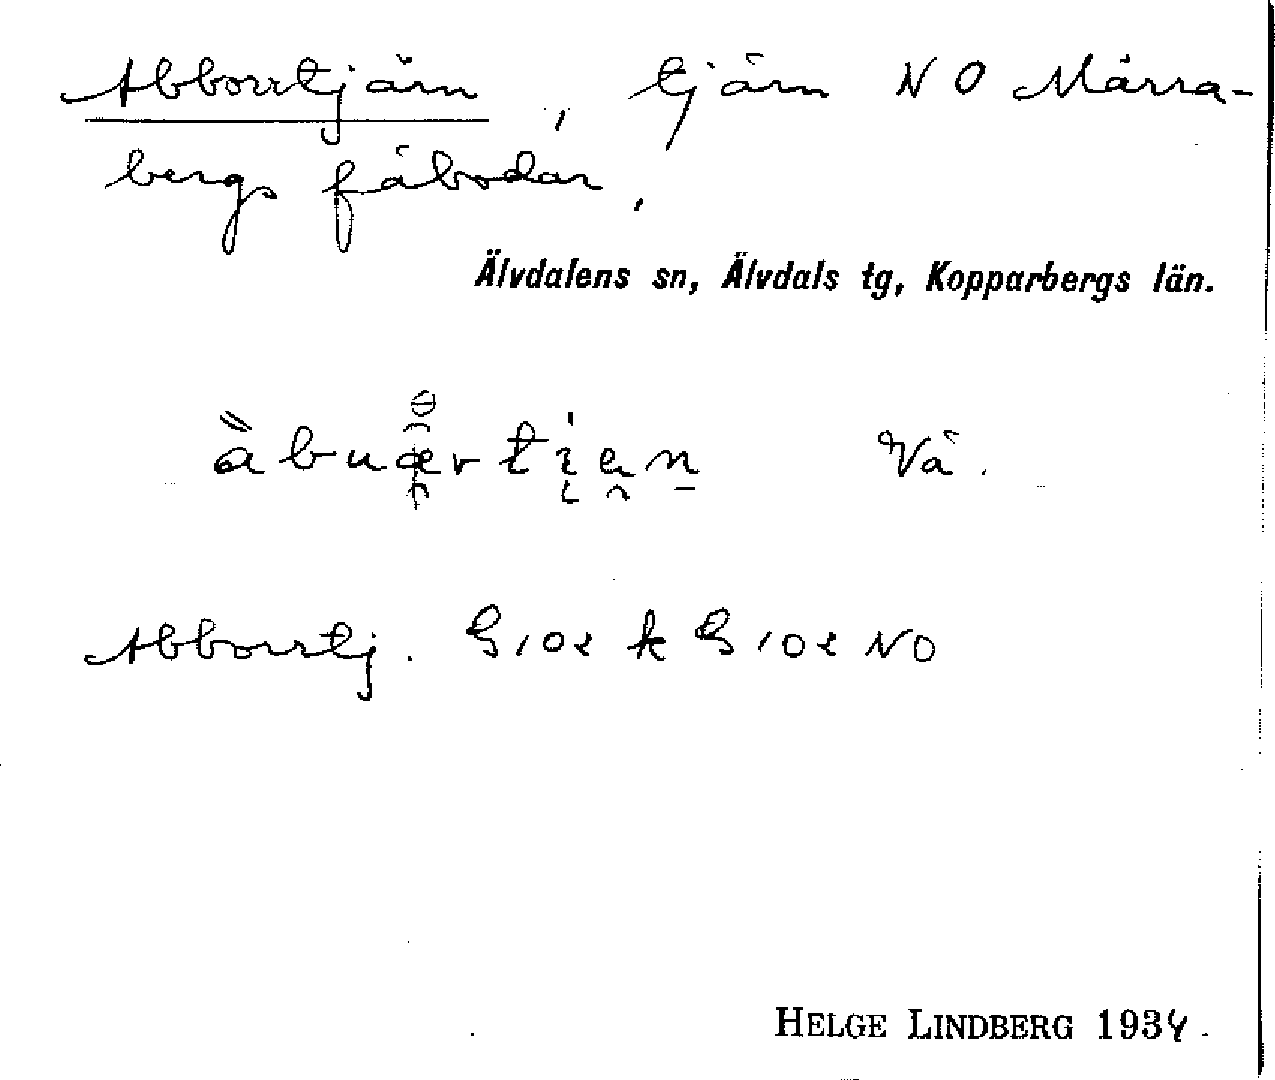 Abborrtjärn, tjärn NO Märra-
bergs fäbodar,
Älvdalens sn, Älvdals tg, Kopparbergs län.
Vå.
Abborrtj. G 102 k G 102 NO
HELGE LINDBERG 1934.